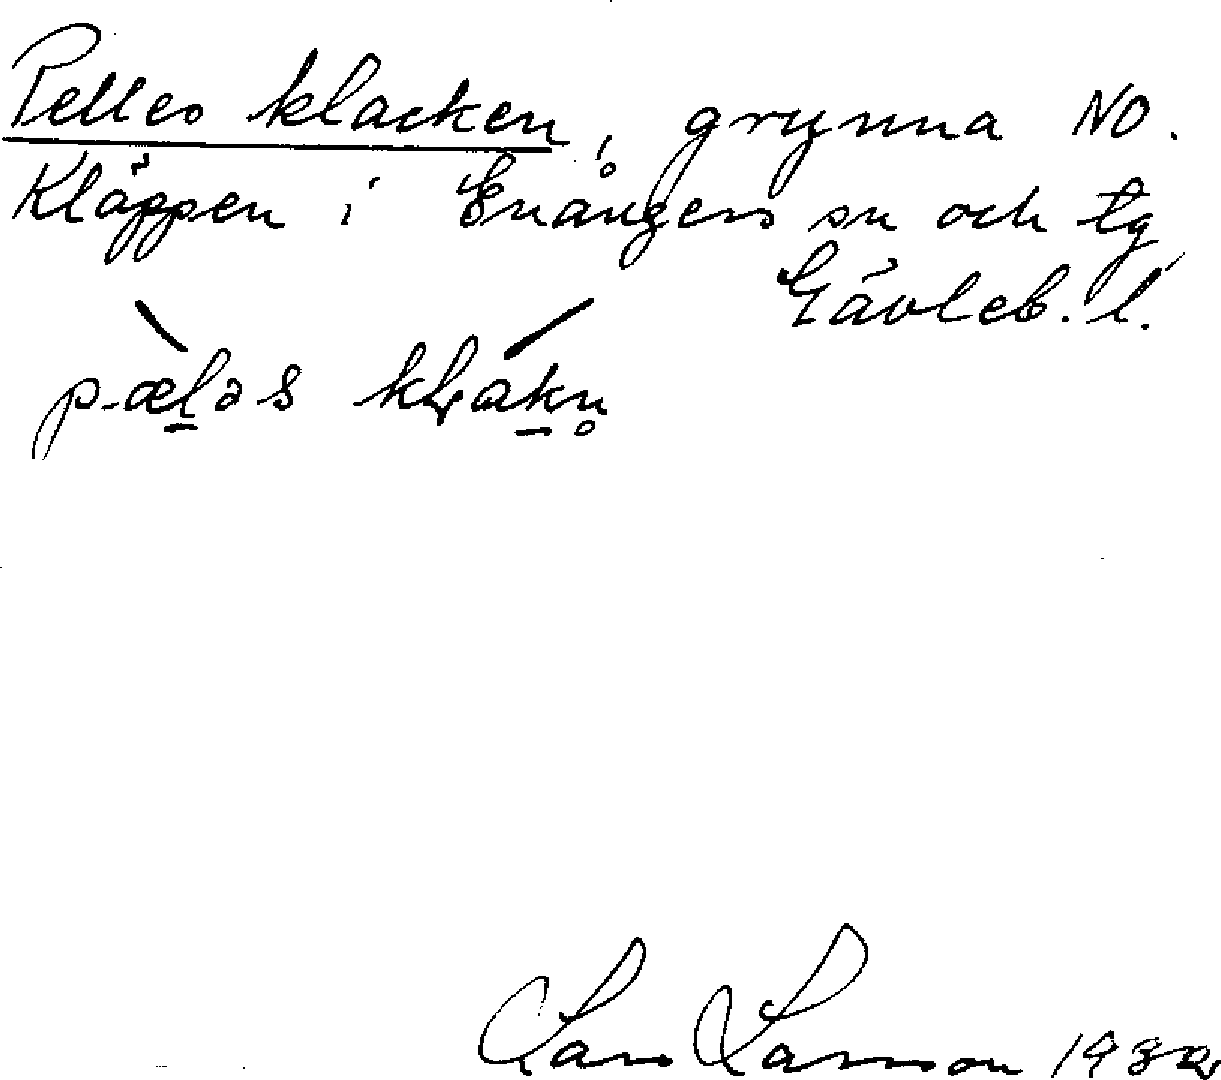 Pelles klacken, grynna NO.
Kläppen i Enångers sn och tg
Gävleb. l.
pæləs kɽakn̥
Lars Larsson 1932